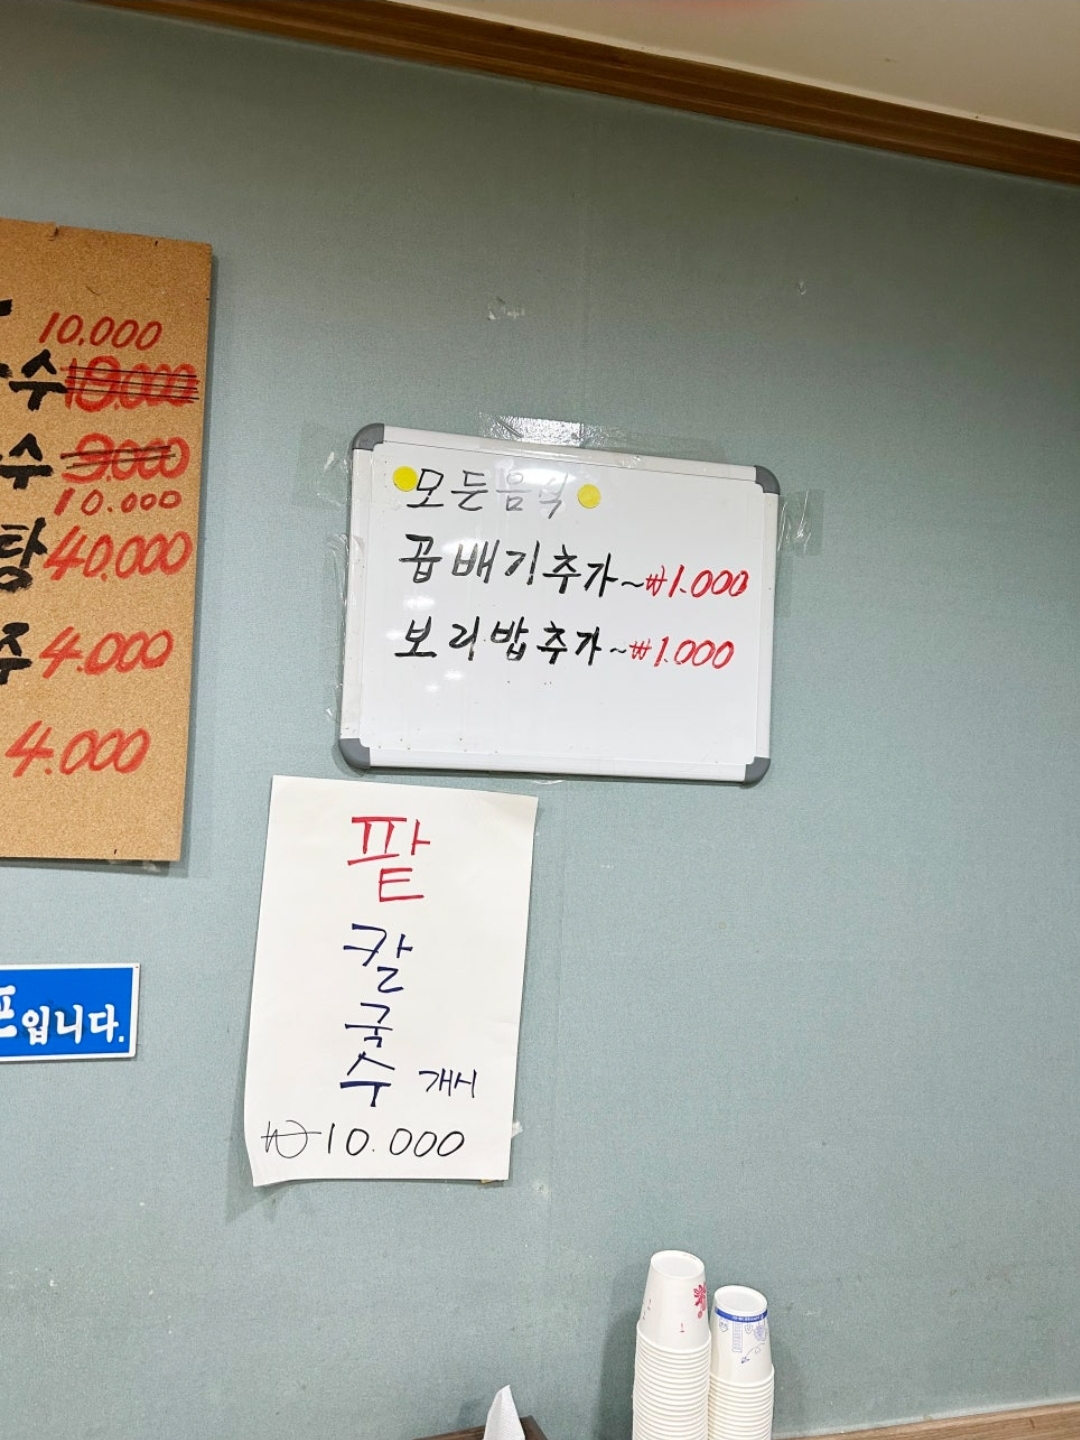 10,000
수 10.000
수 9.000
10.000
탕 40,000
주 4.000
4.000
모든음식
곱배기추가~₩1.000
보리밥추가~₩1.000
팥
칼
국
수 개시
₩10.000
입니다.